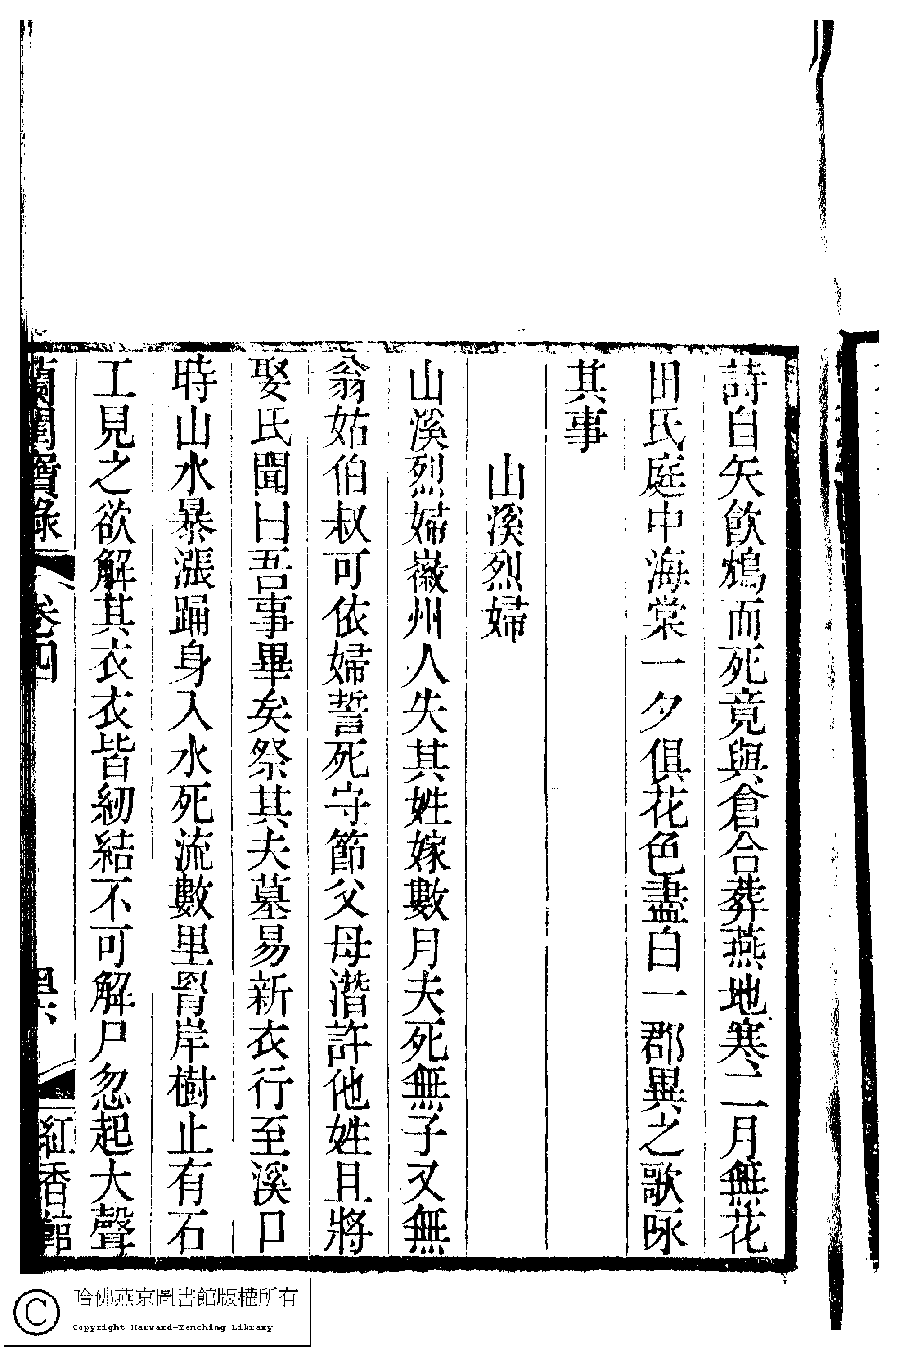 詩自矢飲鴆而死竟與倉合葬燕地寒二月無花
田氏庭中海棠一夕俱花色盡白一郡異之歌咏
其事
山溪烈婦
山溪烈婦徽州人失其姓嫁數月夫死無子又無
翁姑伯叔可依婦誓死守節父母潛許他姓且將
娶氏聞曰吾事畢矣祭其夫墓易新衣行至溪口
時山水暴漲踊身入水死流數里罥岸樹止有石
工見之欲解其衣衣皆紉結不可解尸忽起大聲
蘭閨寶錄
卷四
紅香館
哈佛燕京圖書館版權所有
Copyright Harvard-Yenching Library